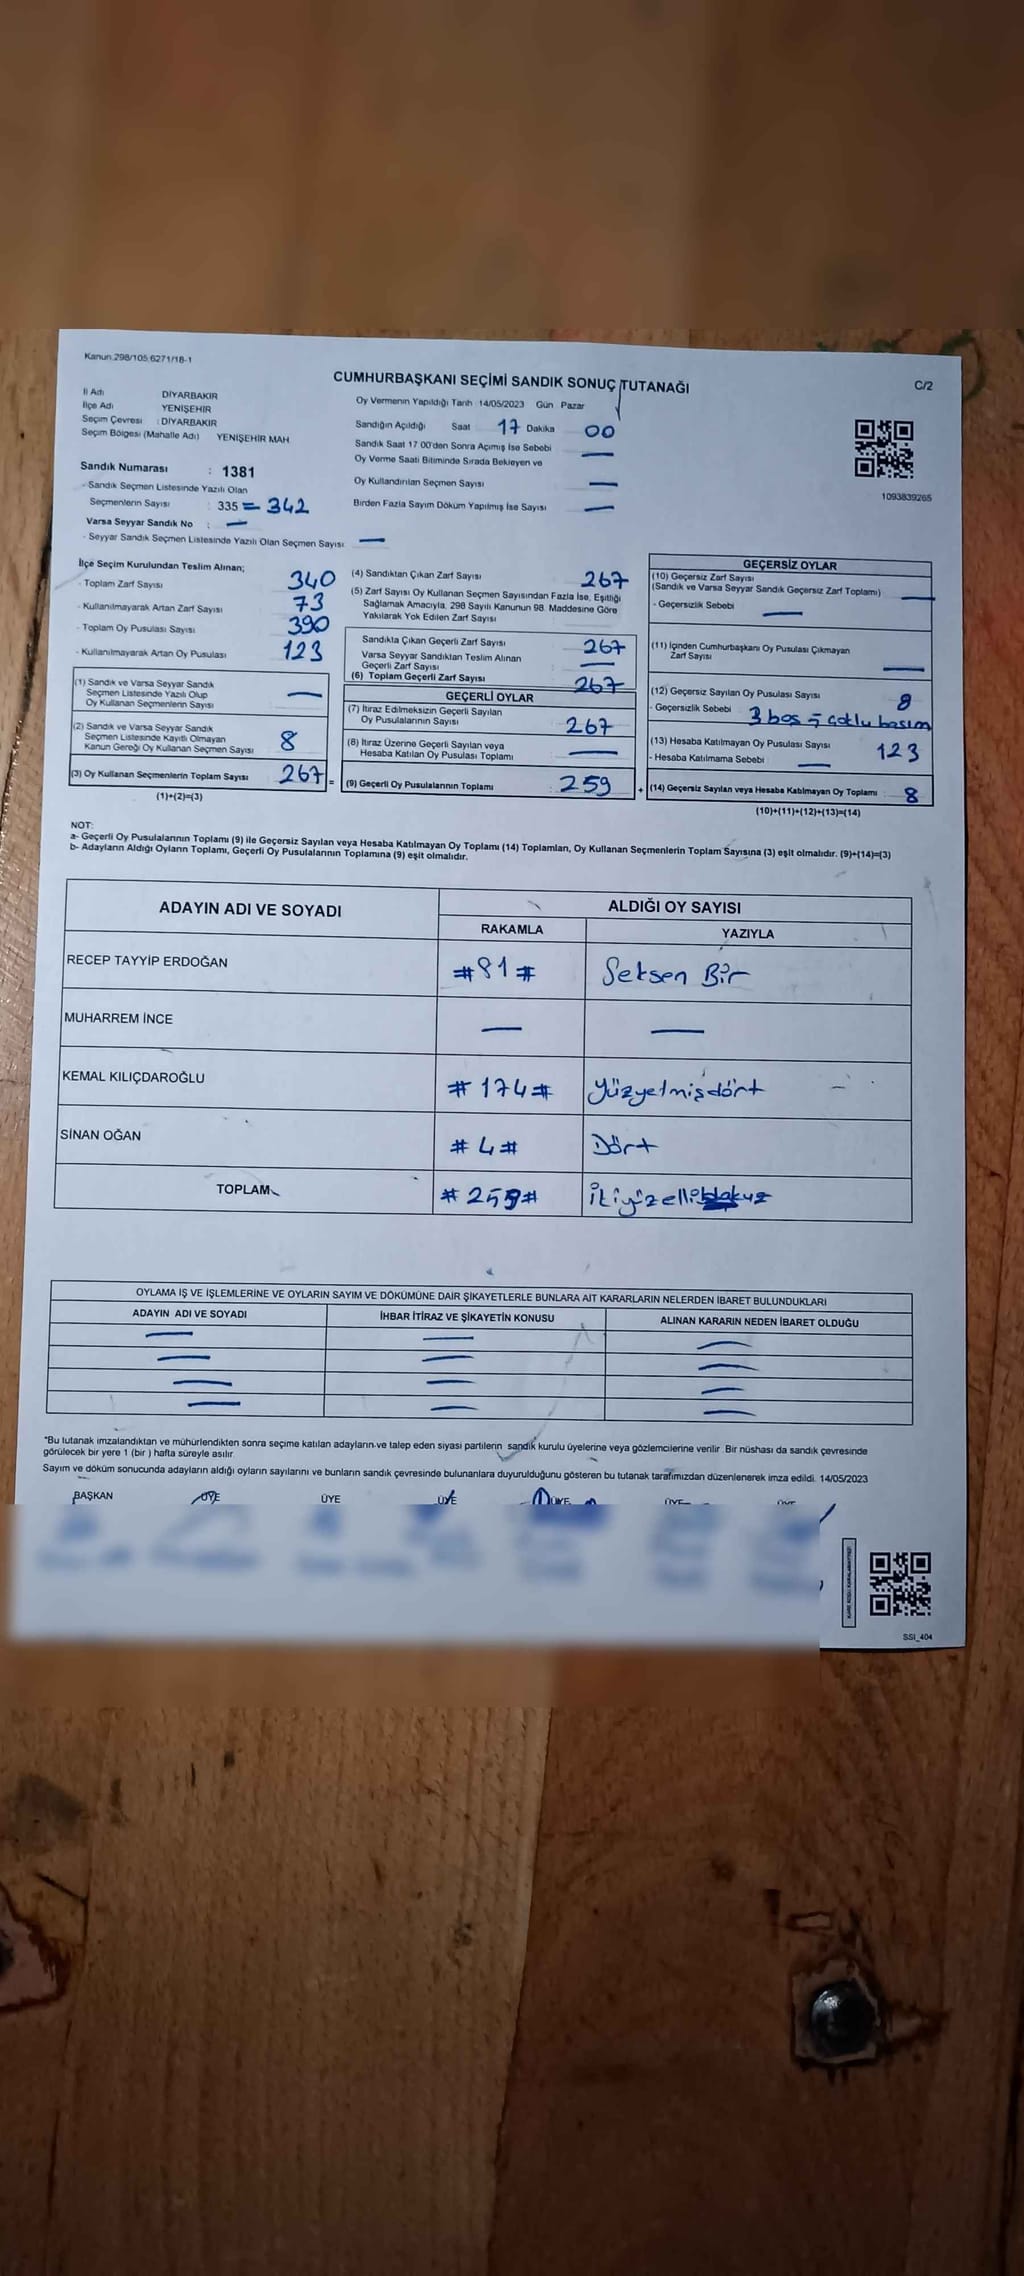 Kanun.298/105.6271/18-1
CUMHURBAŞKANI SEÇİMİ SANDIK SONUÇ TUTANAĞI
C/2
İl Adı DİYARBAKIR
İlçe Adı YENİŞEHİR
Seçim Çevresi : DİYARBAKIR
Seçim Bölgesi (Mahalle Adı) YENİŞEHİR MAH.
Sandık Numarası : 1381
- Sandık Seçmen Listesinde Yazılı Olan
Seçmenlerin Sayısı : 335 = 342
Varsa Seyyar Sandık No : —
- Seyyar Sandık Seçmen Listesinde Yazılı Olan Seçmen Sayısı: —
Oy Vermenin Yapıldığı Tarih 14/05/2023 Gün Pazar
Sandığın Açıldığı Saat 17 Dakika 00
Sandık Saat 17.00'den Sonra Açımış İse Sebebi —
Oy Verme Saati Bitiminde Sırada Bekleyen ve
Oy Kullandırılan Seçmen Sayısı —
Birden Fazla Sayım Döküm Yapılmış İse Sayısı —
1093839265
İlçe Seçim Kurulundan Teslim Alınan;
- Toplam Zarf Sayısı 340
- Kullanılmayarak Artan Zarf Sayısı 73
- Toplam Oy Pusulası Sayısı 390
- Kullanılmayarak Artan Oy Pusulası 123
(1) Sandık ve Varsa Seyyar Sandık
Seçmen Listesinde Yazılı Olup
Oy Kullanan Seçmenlerin Sayısı —
(2) Sandık ve Varsa Seyyar Sandık
Seçmen Listesinde Kayıtlı Olmayan
Kanun Gereği Oy Kullanan Seçmen Sayısı 8
(3) Oy Kullanan Seçmenlerin Toplam Sayısı 267 =
(1)+(2)=(3)
(4) Sandıktan Çıkan Zarf Sayısı 267
(5) Zarf Sayısı Oy Kullanan Seçmen Sayısından Fazla İse, Eşitliği
Sağlamak Amacıyla, 298 Sayılı Kanunun 98. Maddesine Göre
Yakılarak Yok Edilen Zarf Sayısı
Sandıkta Çıkan Geçerli Zarf Sayısı 267
Varsa Seyyar Sandıktan Teslim Alınan
Geçerli Zarf Sayısı —
(6) Toplam Geçerli Zarf Sayısı 267
GEÇERLİ OYLAR
(7) İtiraz Edilmeksizin Geçerli Sayılan
Oy Pusulalarının Sayısı 267
(8) İtiraz Üzerine Geçerli Sayılan veya
Hesaba Katılan Oy Pusulası Toplamı —
(9) Geçerli Oy Pusulalarının Toplamı : 259 +
GEÇERSİZ OYLAR
(10) Geçersiz Zarf Sayısı
(Sandık ve Varsa Seyyar Sandık Geçersiz Zarf Toplamı) —
- Geçersizlik Sebebi —
(11) İçinden Cumhurbaşkanı Oy Pusulası Çıkmayan
Zarf Sayısı —
(12) Geçersiz Sayılan Oy Pusulası Sayısı 8
- Geçersizlik Sebebi 3 boş 5 çoklu basım
(13) Hesaba Katılmayan Oy Pusulası Sayısı 123
- Hesaba Katılmama Sebebi —
(14) Geçersiz Sayılan veya Hesaba Katılmayan Oy Toplamı : 8
(10)+(11)+(12)+(13)=(14)
NOT:
a- Geçerli Oy Pusulalarının Toplamı (9) ile Geçersiz Sayılan veya Hesaba Katılmayan Oy Toplamı (14) Toplamları, Oy Kullanan Seçmenlerin Toplam Sayısına (3) eşit olmalıdır. (9)+(14)=(3)
b- Adayların Aldığı Oyların Toplamı, Geçerli Oy Pusulalarının Toplamına (9) eşit olmalıdır.
ADAYIN ADI VE SOYADI ALDIĞI OY SAYISI
RAKAMLA YAZIYLA
RECEP TAYYİP ERDOĞAN #81# Seksen Bir
MUHARREM İNCE — —
KEMAL KILIÇDAROĞLU #174# Yüzyetmişdört
SİNAN OĞAN #4# Dört
TOPLAM #259#
OYLAMA İŞ VE İŞLEMLERİNE VE OYLARIN SAYIM VE DÖKÜMÜNE DAİR ŞİKAYETLERLE BUNLARA AİT KARARLARIN NELERDEN İBARET BULUNDUKLARI
ADAYIN ADI VE SOYADI İHBAR İTİRAZ VE ŞİKAYETİN KONUSU ALINAN KARARIN NEDEN İBARET OLDUĞU
— — —
— — —
— — —
— — —
*Bu tutanak imzalandıktan ve mühürlendikten sonra seçime katılan adayların ve talep eden siyasi partilerin sandık kurulu üyelerine veya gözlemcilerine verilir. Bir nüshası da sandık çevresinde
görülecek bir yere 1 (bir ) hafta süreyle asılır.
Sayım ve döküm sonucunda adayların aldığı oyların sayılarını ve bunların sandık çevresinde bulunanlara duyurulduğunu gösteren bu tutanak tarafımızdan düzenlenerek imza edildi. 14/05/2023
BAŞKAN ÜYE ÜYE ÜYE ÜYE ÜYE ÜYE
SSI_404